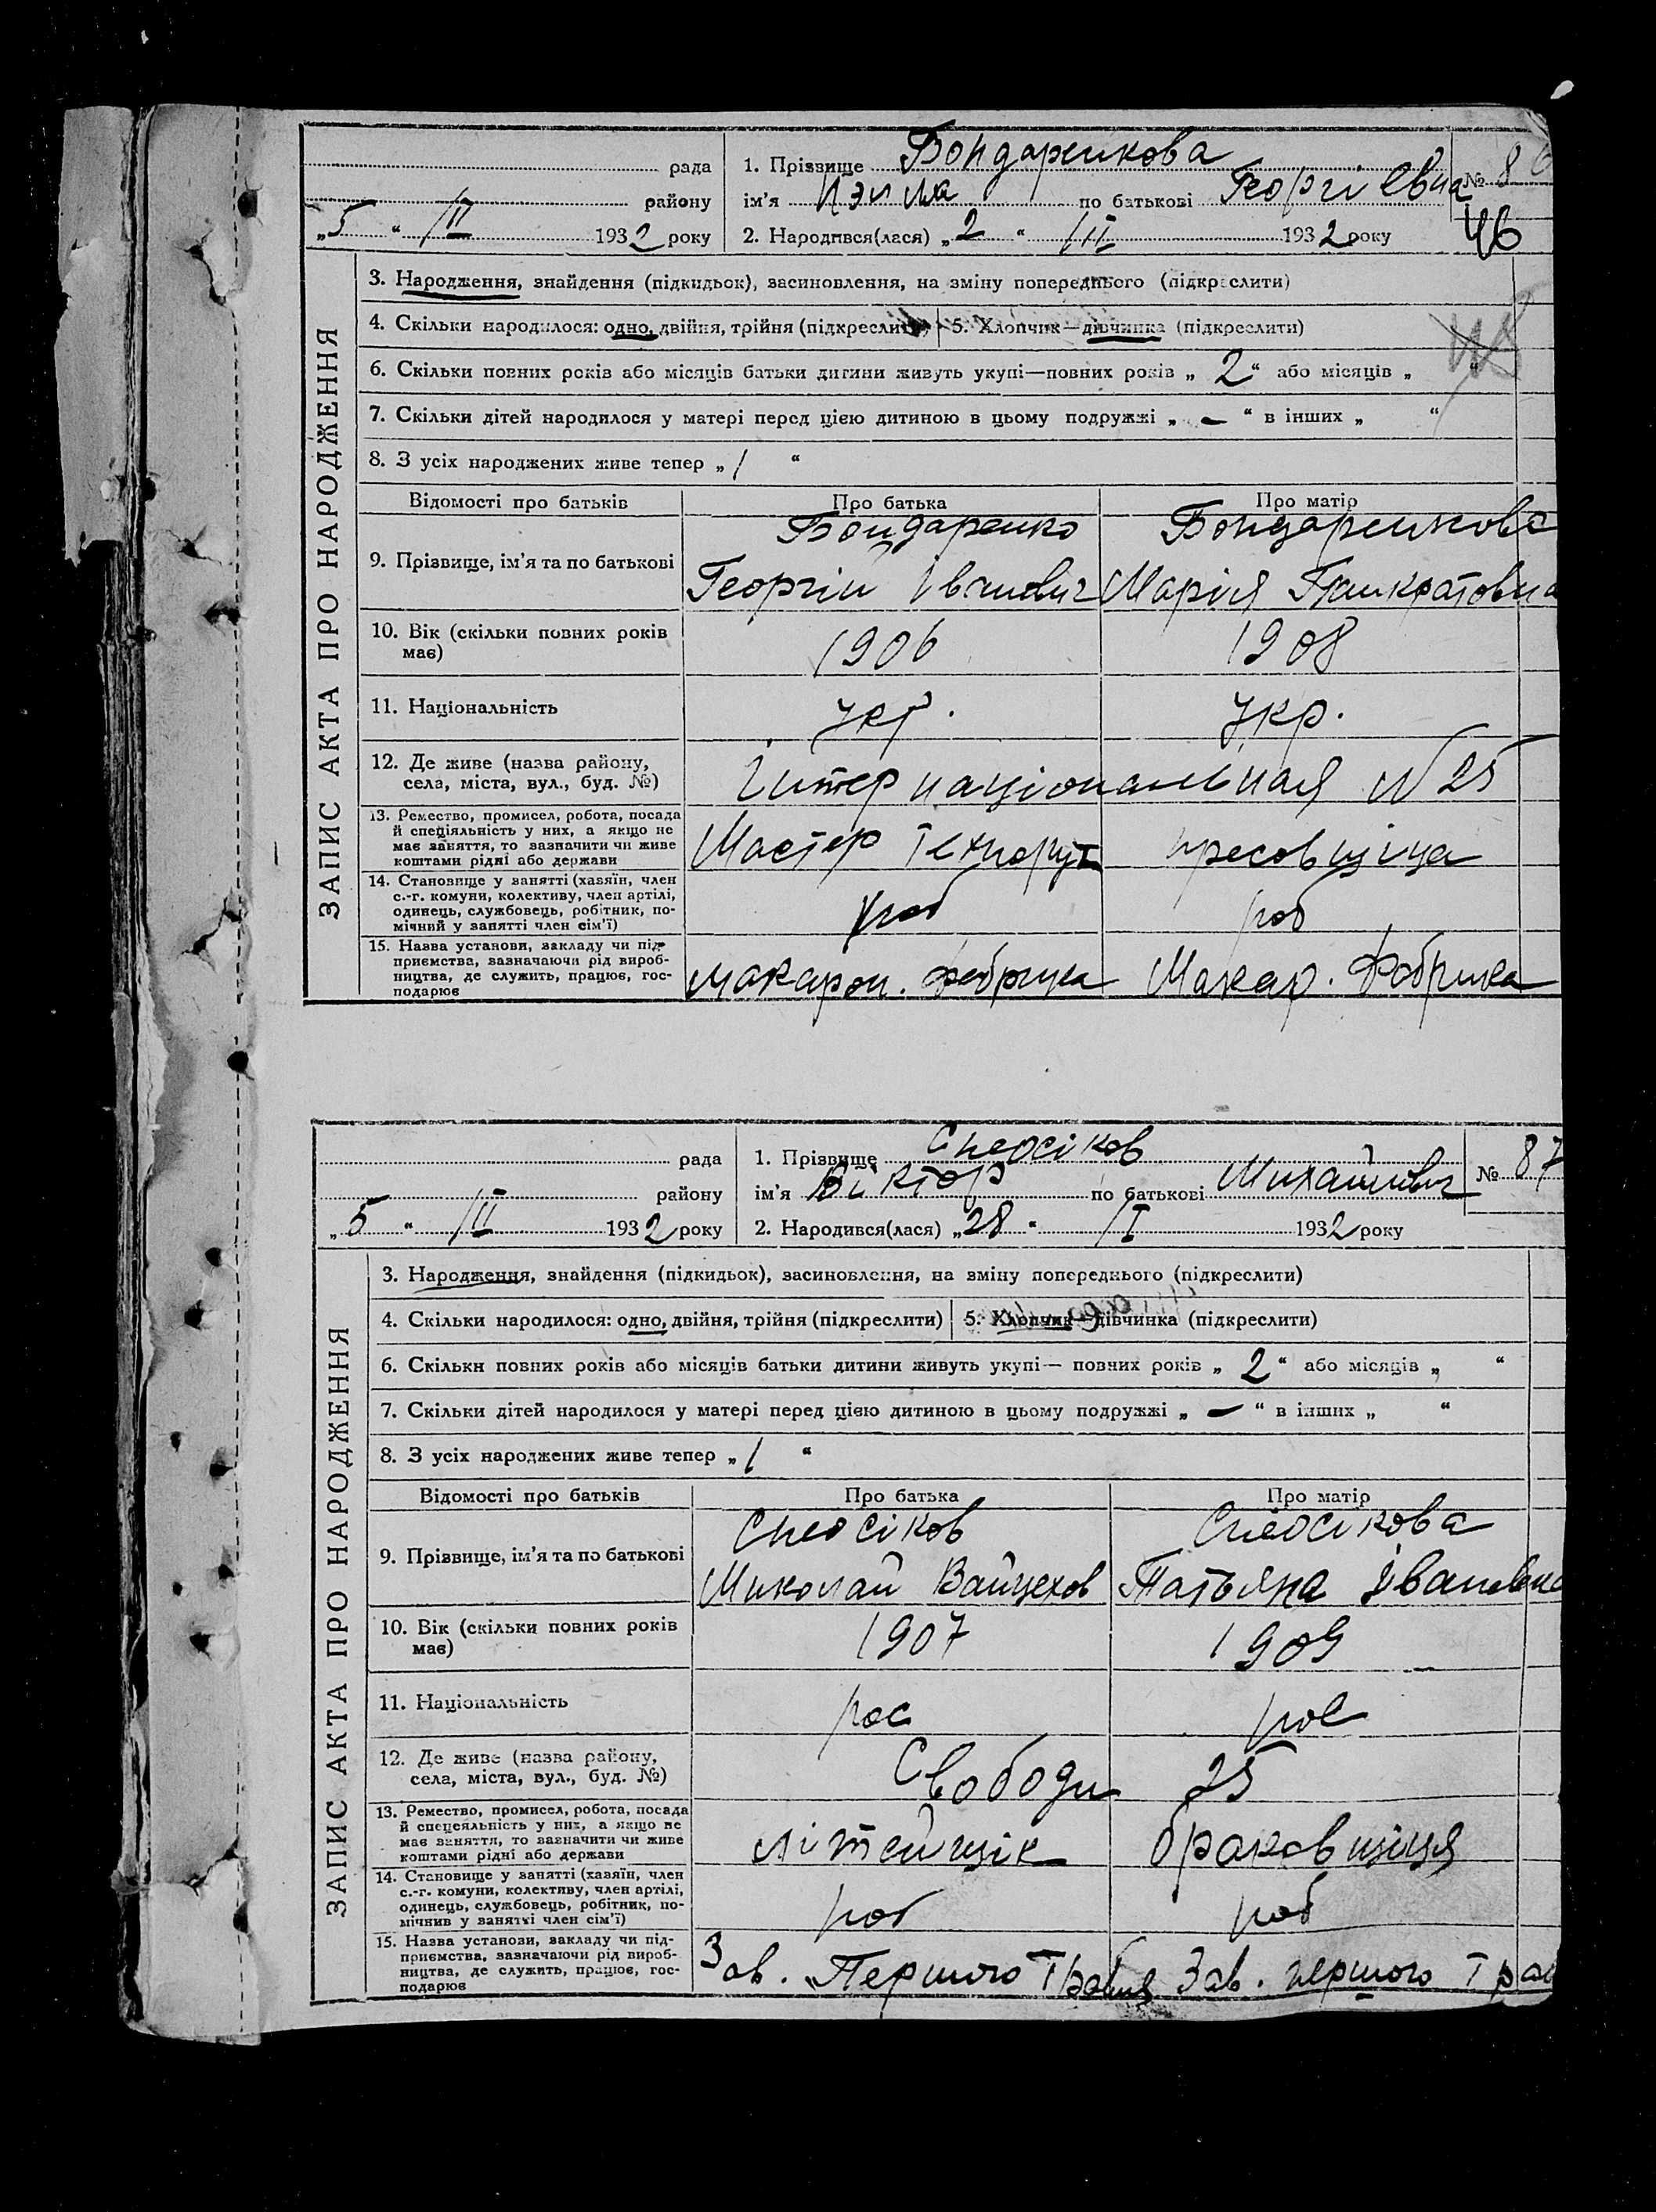 рада
району
„5“ III 1932 року
1. Прізвище Бондаренкова
ім'я по батькові Георгіевна
2. Народився(лася) „2“ III 1932 року
№ 86
46
ЗАПИС АКТА ПРО НАРОДЖЕННЯ
3. Народження, знайдення (підкидьок), засиновлення, на зміну попереднього (підкреслити)
4. Скільки народилося: одно, двійня, трійня (підкреслити) 5. Хлопчик—дівчинка (підкреслити)
6. Скільки повних років або місяців батьки дитини живуть укупі—повних років „2“ або місяців „ “
7. Скільки дітей народилося у матері перед цією дитиною в цьому подружжі „—“ в інших „ “
8. З усіх народжених живе тепер „1“
Відомості про батьків Про батька Про матір
9. Прізвище, ім'я та по батькові
Бондаренко Бондаренкова
Георгій Іванович Марія Панкратовна
10. Вік (скільки повних років
має)
1906 1908
11. Національність укр. укр.
12. Де живе (назва району,
села, міста, вул., буд. №)
Інтернаціональная №25
13. Ремество, промисел, робота, посада
й спеціяльність у них, а якщо не
має заняття, то зазначити чи живе
коштами рідні або держави
Мастер пресовщіца
14. Становище у занятті (хазяїн, член
с.-г. комуни, колективу, член артілі,
одинець, службовець, робітник, по-
мічний у занятті член сім'ї)
роб роб
15. Назва установи, закладу чи під-
приємства, зазначаючи рід вироб-
ництва, де служить, працює, гос-
подарює
макарон. фабрика Макар. Фабрика
рада
району
„5“ III 1932 року
1. Прізвище
ім'я Віктор по батькові Михайлович
2. Народився(лася) „28“ I 1932 року
№ 87
ЗАПИС АКТА ПРО НАРОДЖЕННЯ
3. Народження, знайдення (підкидьок), засиновлення, на зміну попереднього (підкреслити)
4. Скільки народилося: одно, двійня, трійня (підкреслити) 5. Хлопчик—дівчинка (підкреслити)
6. Скільки повних років або місяців батьки дитини живуть укупі— повних років „2“ або місяців „ “
7. Скільки дітей народилося у матері перед цією дитиною в цьому подружжі „—“ в інших „ “
8. З усіх народжених живе тепер „1“
Відомості про батьків Про батька Про матір
9. Прізвище, ім'я та по батькові
Миколай Татьяна Івановна
10. Вік (скільки повних років
має)
1907 1909
11. Національність рос рос
12. Де живе (назва району,
села, міста, вул., буд. №)
Свободи 25
13. Ремество, промисел, робота, посада
й спецеяльність у них, а якщо не
має заняття, то зазначити чи живе
коштами рідні або держави
літейщік браковщіця
14. Становище у занятті (хазяїн, член
с.-г. комуни, колективу, член артілі,
одинець, службовець, робітник, по-
мічнив у занятті член сім'ї)
роб роб
15. Назва установи, закладу чи під-
приємства, зазначаючи рід вироб-
ництва, де служить, працює, гос-
подарює
Зав. Першого Травня Зав. першого Трав